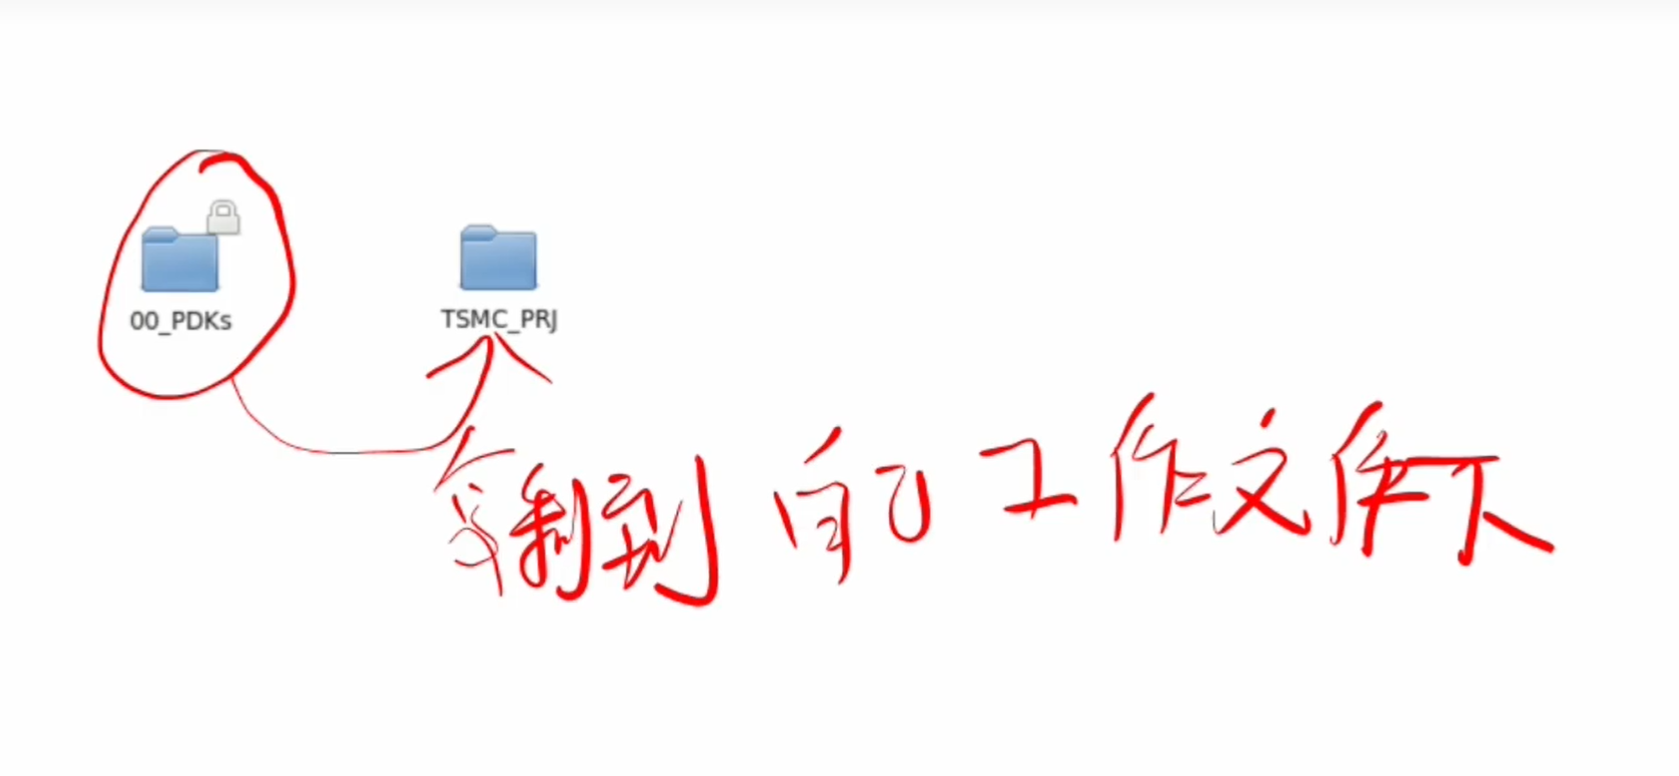 00_PDKs TSMC_PRJ
复制到自己工作文件下